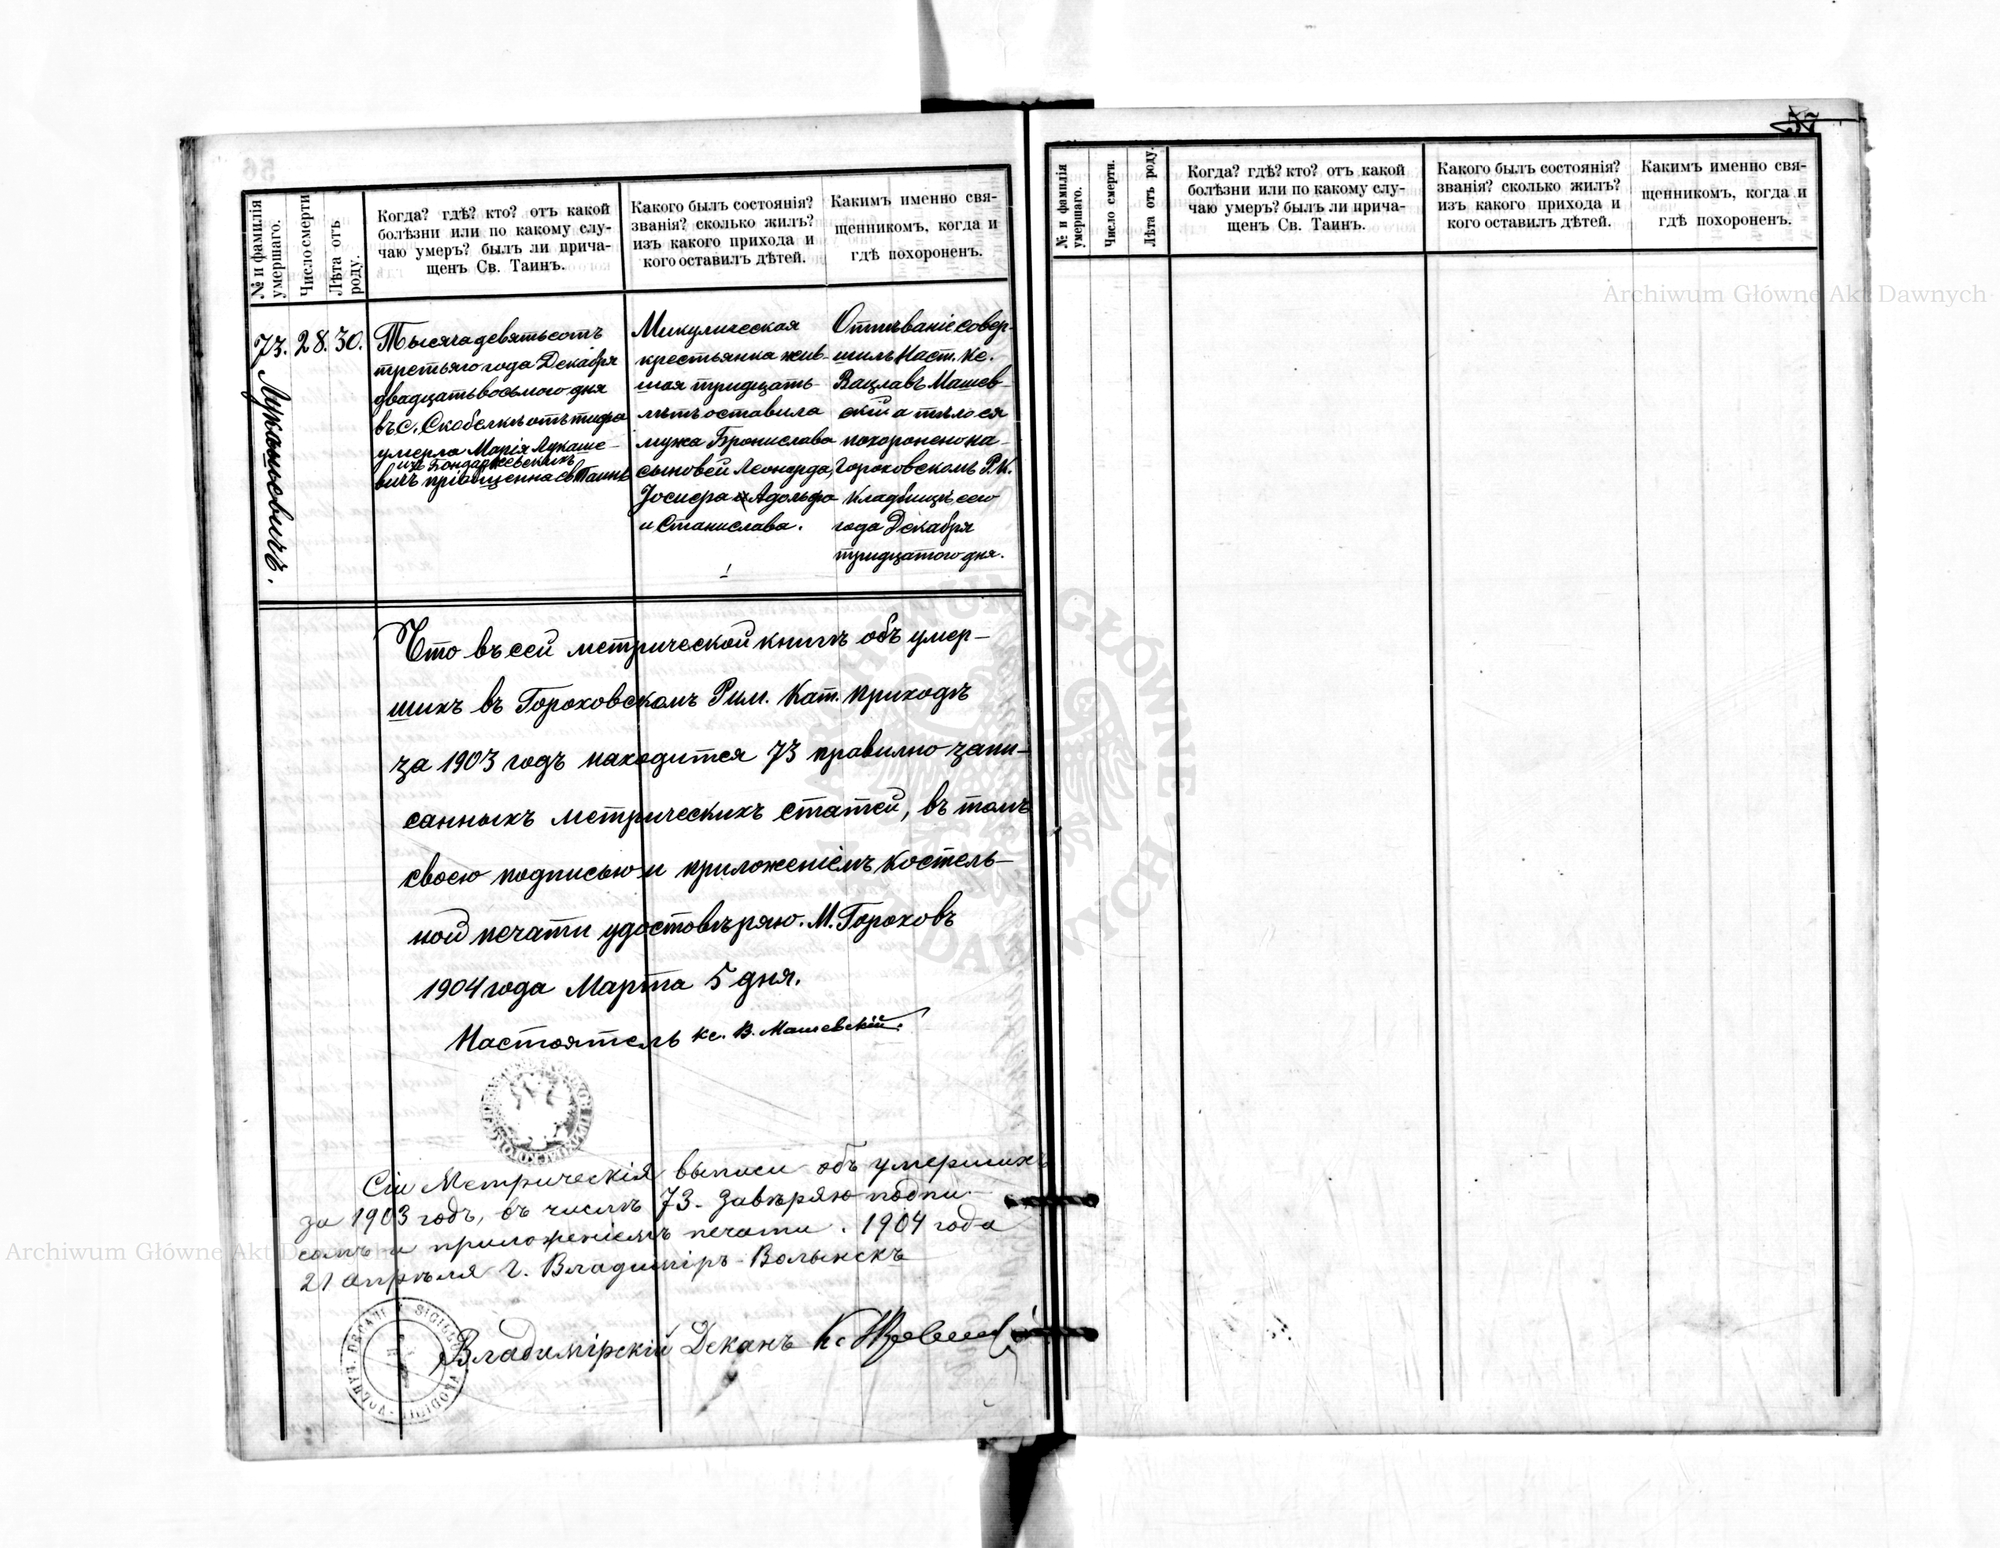 56
№ и фамилія
умершаго.
Число смерти
Лѣта отъ
роду.
Когда? гдѣ? кто? отъ какой
болѣзни или по какому слу-
чаю умеръ? былъ ли прича-
щенъ Св. Таинъ.
Какого былъ состоянія?
званія? сколько жилъ?
изъ какого прихода и
кого оставилъ дѣтей.
Какимъ именно свя-
щенникомъ, когда и
гдѣ похороненъ.
73. 28. 30.
Лукашевичъ.
Тысяча девятьсотъ
третьяго года Декабря
двадцать восьмого дня
въ с. Скобелкѣ отъ тифа
умерла Марія Лукаше-
изъ Бондаржевскихъ
вичъ пріобщенна св Таинъ
Микулическая
крестьянка жив-
шая тридцать
лѣтъ оставила
мужа Бронислава
сыновей Леонарда,
Іосифа и Адольфа
и Станислава.
Отпѣваніе совер-
шилъ Наст. Кс.
Вацлавъ Машев-
скій а тѣло ея
похоронено на
Гороховскомъ Р. К.
кладбищѣ сего
года Декабря
тридцатого дня.
Что въ сей метрической книгѣ объ умер-
шихъ въ Гороховскомъ Рим. Кат. приходѣ
за 1903 годъ находится 73 правилно запи-
санныхъ метрическихъ статей, въ томъ
своею подписью и приложеніемъ костель-
ной печати удостовѣряю. М. Гороховъ
1904 года Марта 5 дня.
Настоятель кс. В. Машевскій.
Сіи Метрическія выписи объ умершихъ
за 1903 годъ, въ числѣ 73. завѣряю подпи
сомъ и приложеніемъ печати. 1904 года
21 апрѣля г. Владиміръ-Волынскъ
Владимірскій Деканъ Кс
57
№ и фамилія
умершаго.
Число смерти.
Лѣта отъ роду.
Когда? гдѣ? кто? отъ какой
болѣзни или по какому слу-
чаю умеръ? былъ ли прича-
щенъ Св. Таинъ.
Какого былъ состоянія?
званія? сколько жилъ?
изъ какого прихода и
кого оставилъ дѣтей.
Какимъ именно свя-
щенникомъ, когда и
гдѣ похороненъ.
Archiwum Główne Akt Dawnych
Archiwum Główne Akt Dawnych
ARCHIWUM GŁÓWNE AKT DAWNYCH